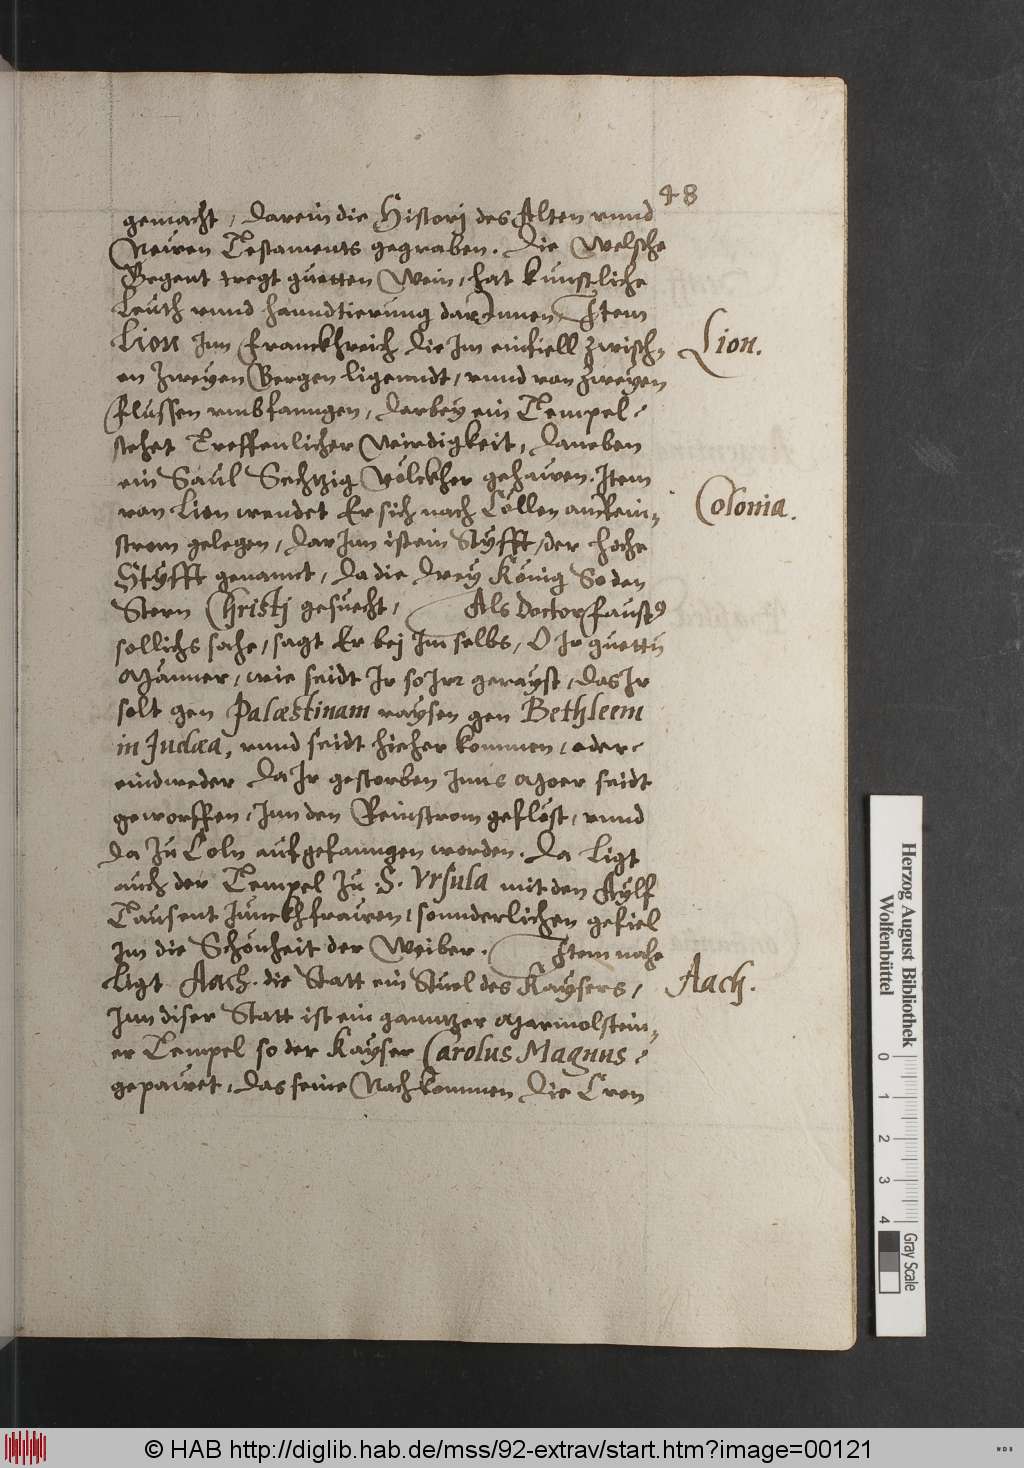 48
gemacht, darein die Historj des Alten vund
Newen Testaments gegraben. Die Welsche
Gegent tregt guetten Wein, hat kunstliche
Leüth vnnd hanndtierung darJnnen, Jtem
Lion Jnn Franckhreich die Jm einfiell zwisch„
en zweyen Bergen ligenndt, vnnd von zweyen
Flussen vmbfanngen, darbey ein Tempel
stehet Treffenlicher Wirdigkeit, daneben
ein Saül Sechtzig Völckher gehawen. Jtem
von Lion wendet Er sich nach Cöllen am Rein„
strom gelegen, darJnn ist ein Styfft, der hoche
Styfft genannt, da die drey König So den
Stern Christj gesücht, Als Doctor Faustꝰ
sollichs sahe, sagt Er bej Jm selbs, O Jr guetten
Männer, wie seidt Jr so Jrr gerayst, das Jr
solt gen Palæstinam raysen gen Bethleem
in Judæa, vnnd seidt hieher kommen, oder
eindweder da Jr gestorben Jnns Moer seidt
geworffen, Jnn den Reinstrom geflöst, vnnd
da zu Coln aufgefanngen worden. Da ligt
auch der Tempel zu S. Vrsula mit den Aylf
Tausent Jünckhfrawen, sonnderlichen gefiel
Jm die Schönheit der Weiber. Jtem nahe
ligt Aach. die Statt ein Stuel des Kaysers,
Jnn diser Statt ist ein ganntzer Marmolstein„
er Tempel so der Kayser Carolus Magnus
gepawet, das seine Nachkommen die Cron
Lion.
Colonia.
Aach.
Herzog August Bibliothek
Wolfenbüttel
0 1 2 3 4
Gray Scale
© HAB http://diglib.hab.de/mss/92-extrav/start.htm?image=00121
WDB